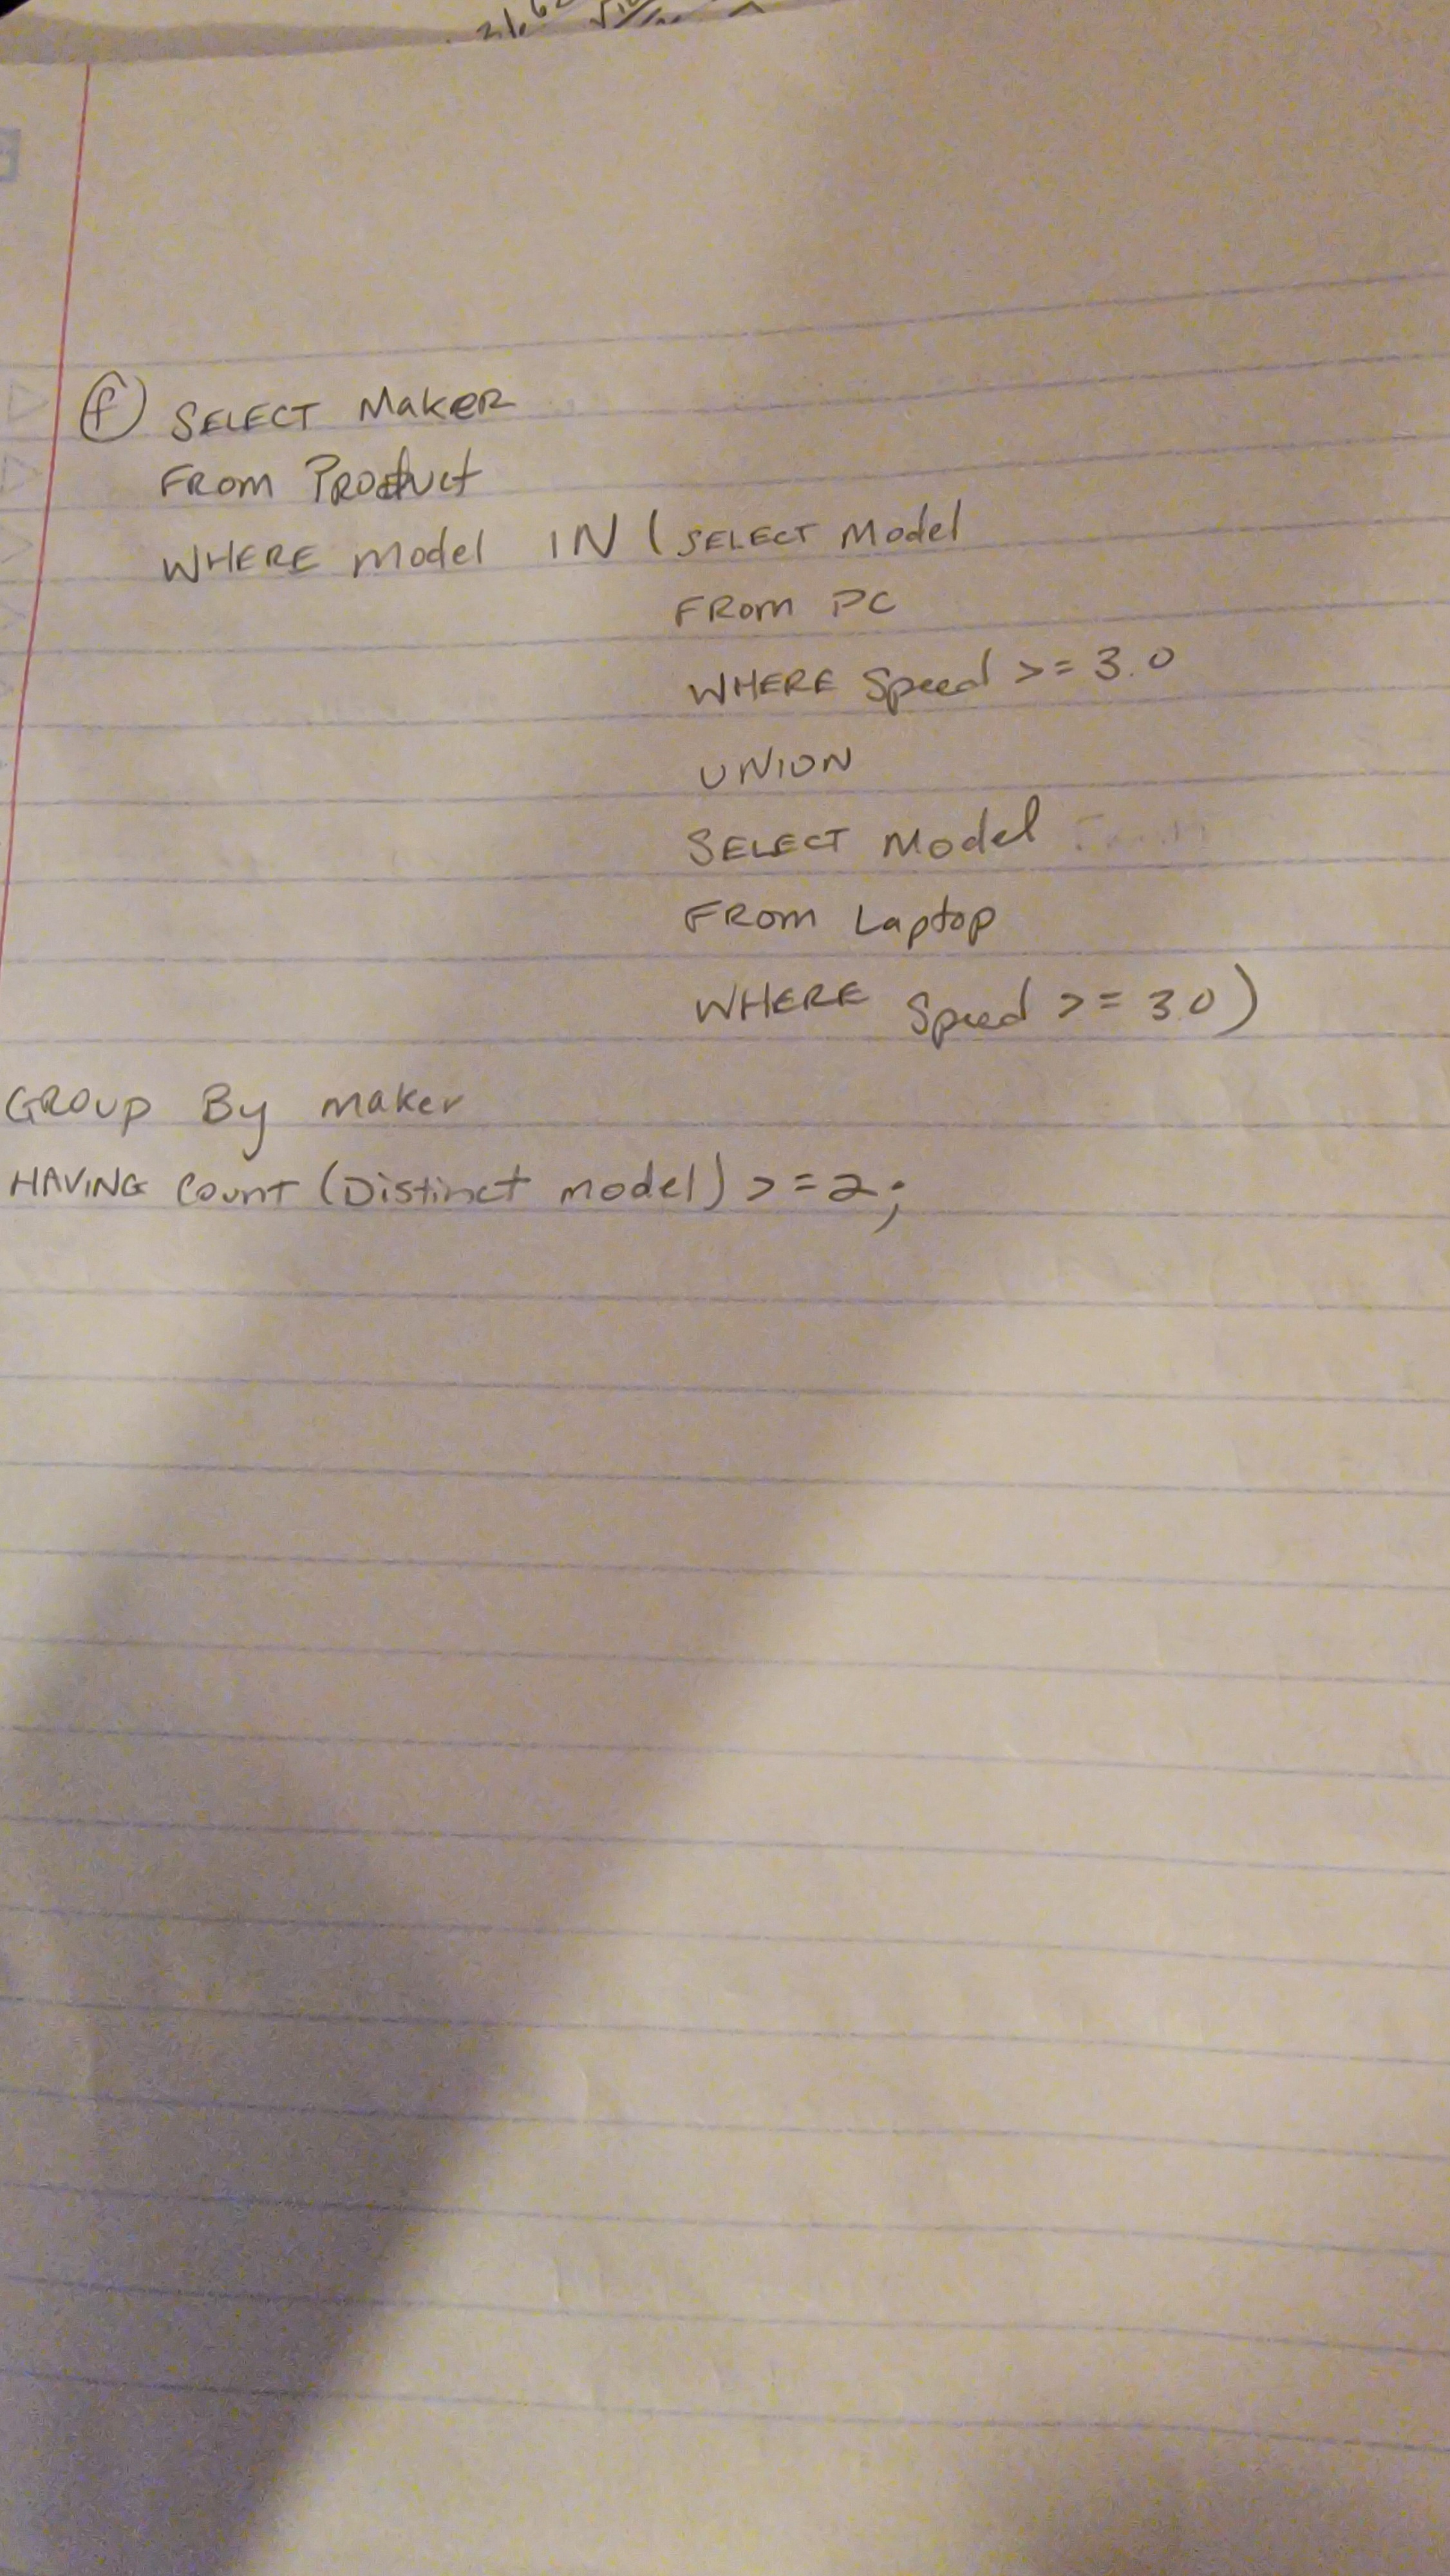 21.6
(f) SELECT Maker
FROM Product
WHERE model IN (SELECT Model
FROM PC
WHERE Speed >= 3.0
UNION
SELECT Model
FROM Laptop
WHERE Speed >= 3.0)
GROUP By maker
HAVING Count (Distinct model) >= 2;